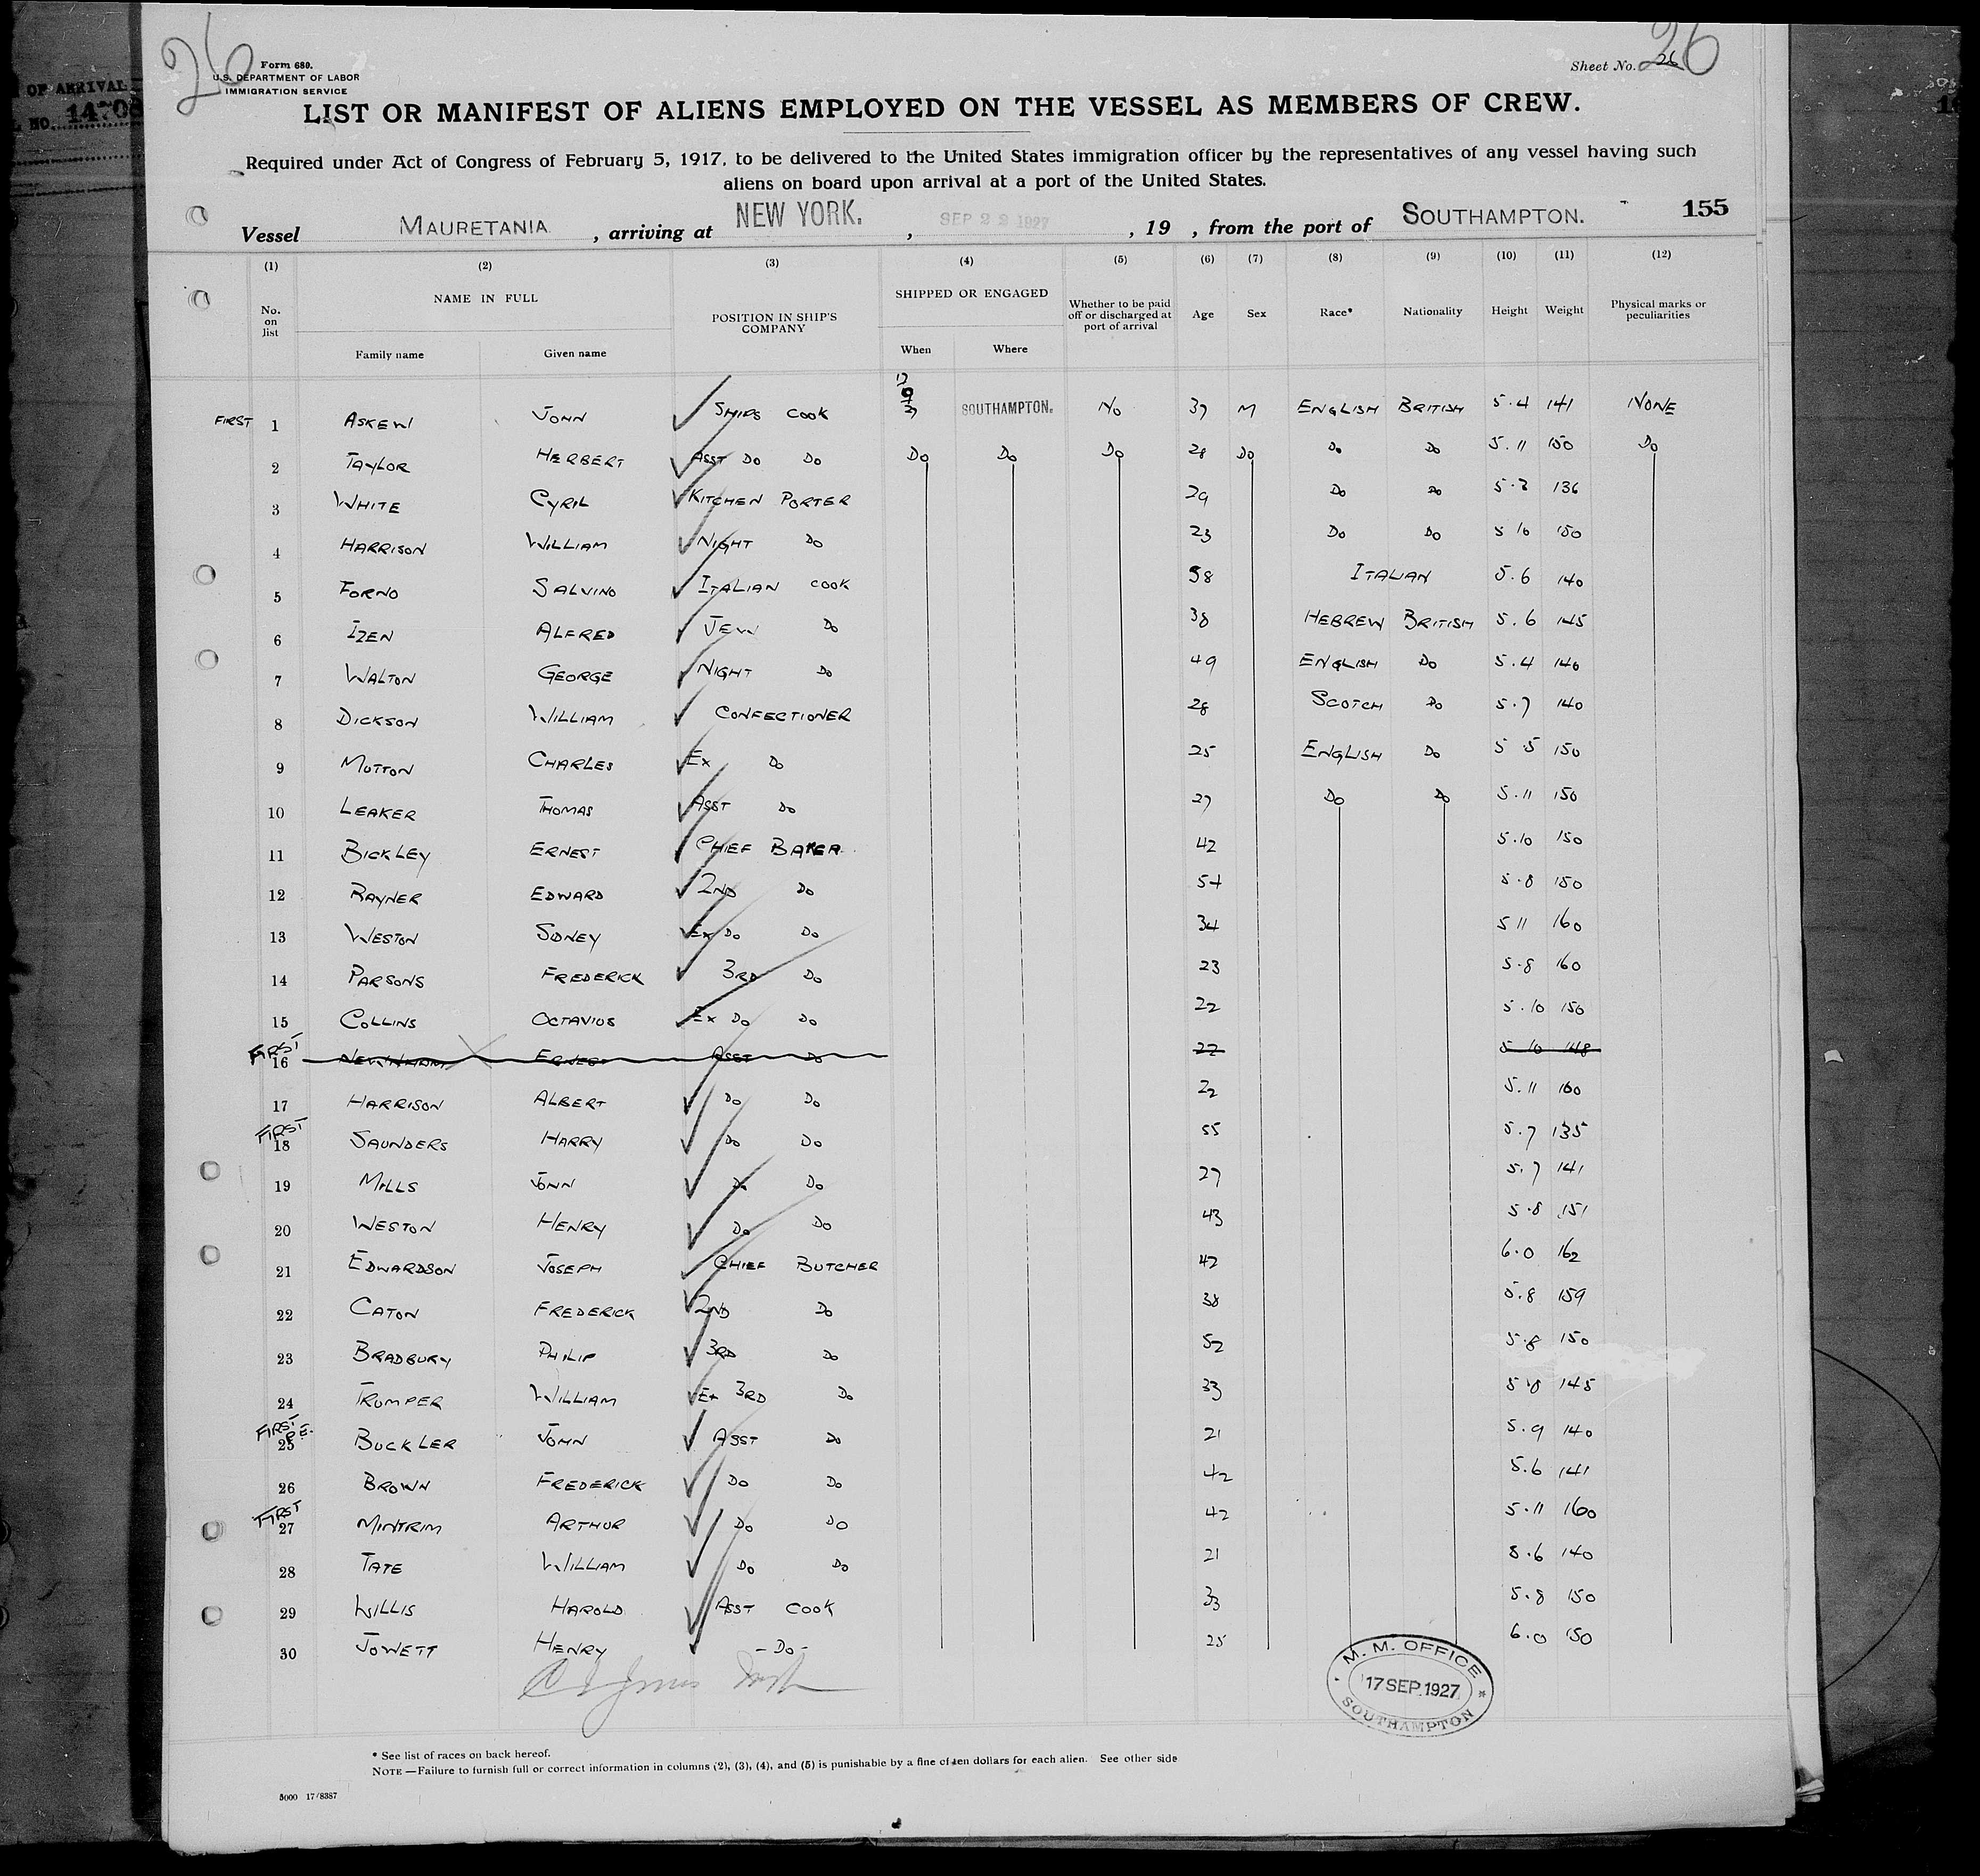 26
26
Form 680.
U.S. DEPARTMENT OF LABOR
IMMIGRATION SERVICE
Sheet No. 26
OF ARRIVAL
NO. 14708
LIST OR MANIFEST OF ALIENS EMPLOYED ON THE VESSEL AS MEMBERS OF CREW.
Required under Act of Congress of February 5, 1917, to be delivered to the United States immigration officer by the representatives of any vessel having such
aliens on board upon arrival at a port of the United States.
155
Vessel MAURETANIA, arriving at NEW YORK. , SEP 22 1927 , 19 , from the port of SOUTHAMPTON.
(1) (2) (3) (4) (5) (6) (7) (8) (9) (10) (11) (12)
No. on list NAME IN FULL POSITION IN SHIP'S COMPANY SHIPPED OR ENGAGED Whether to be paid off or discharged at port of arrival Age Sex Race* Nationality Height Weight Physical marks or peculiarities
Family name Given name When Where
FIRST 1 ASKEW JOHN SHIPS COOK SOUTHAMPTON. NO 37 M ENGLISH BRITISH 5.4 141 NONE
2 TAYLOR HERBERT ASST DO DO DO DO DO 28 DO DO DO 5.11 150 DO
3 WHITE CYRIL KITCHEN PORTER 29 DO DO 5.3 136
4 HARRISON WILLIAM NIGHT DO 23 DO DO 5 10 150
5 FORNO SALVINO ITALIAN COOK 58 ITALIAN 5.6 140
6 IZEN ALFRED JEW DO 38 HEBREW BRITISH 5.6 145
7 WALTON GEORGE NIGHT DO 49 ENGLISH DO 5.4 140
8 DICKSON WILLIAM CONFECTIONER 28 SCOTCH DO 5.7 140
9 MUTTON CHARLES EX DO 25 ENGLISH DO 5 5 150
10 LEAKER THOMAS ASST DO 27 DO DO 5.11 150
11 BICKLEY ERNEST CHIEF BAKER 42 5.10 150
12 RAYNER EDWARD 2ND DO 54 5.8 150
13 WESTON SIDNEY EX DO DO 34 5 11 160
14 PARSONS FREDERICK 3RD DO 23 5.8 160
15 COLLINS OCTAVIUS EX DO DO 22 5.10 150
FIRST 16 NEWNHAM ERNEST ASST DO 22 5 10 148
17 HARRISON ALBERT DO DO 22 5.11 160
FIRST 18 SAUNDERS HARRY DO DO 55 5.7 135
19 MILLS JOHN DO DO 27 5.7 141
20 WESTON HENRY DO DO 43 5.8 151
21 EDWARDSON JOSEPH CHIEF BUTCHER 42 6.0 162
22 CATON FREDERICK 2ND DO 38 5.8 159
23 BRADBURY PHILIP 3RD DO 52 5.8 150
24 TRUMPER WILLIAM EX 3RD DO 33 5.8 145
FIRST 25 BUCKLER JOHN ASST DO 21 5.9 140
26 BROWN FREDERICK DO DO 42 5.6 141
FIRST 27 MINTRIM ARTHUR DO DO 42 5.11 160
28 TATE WILLIAM DO DO 21 5.6 140
29 WILLIS HAROLD ASST COOK 33 5.8 150
30 JOWETT HENRY -DO- 25 6.0 150
M. M. OFFICE
17 SEP. 1927
SOUTHAMPTON
* See list of races on back hereof.
NOTE —Failure to furnish full or correct information in columns (2), (3), (4), and (5) is punishable by a fine of ten dollars for each alien. See other side
5000 17/8387